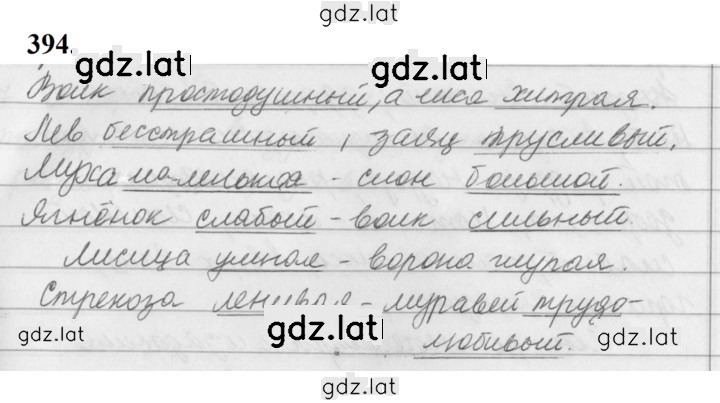 gdz.lat
394.
gdz.lat gdz.lat
Волк простодушный, а лиса хитрая.
Лев бесстрашный, заяц трусливый.
Муха маленькая - слон большой.
Ягнёнок слабый - волк сильный.
Лисица умная - ворона глупая.
Стрекоза ленивая - муравей трудо-
gdz.lat gdz.lat gdz.lat
любивый.
gdz.lat